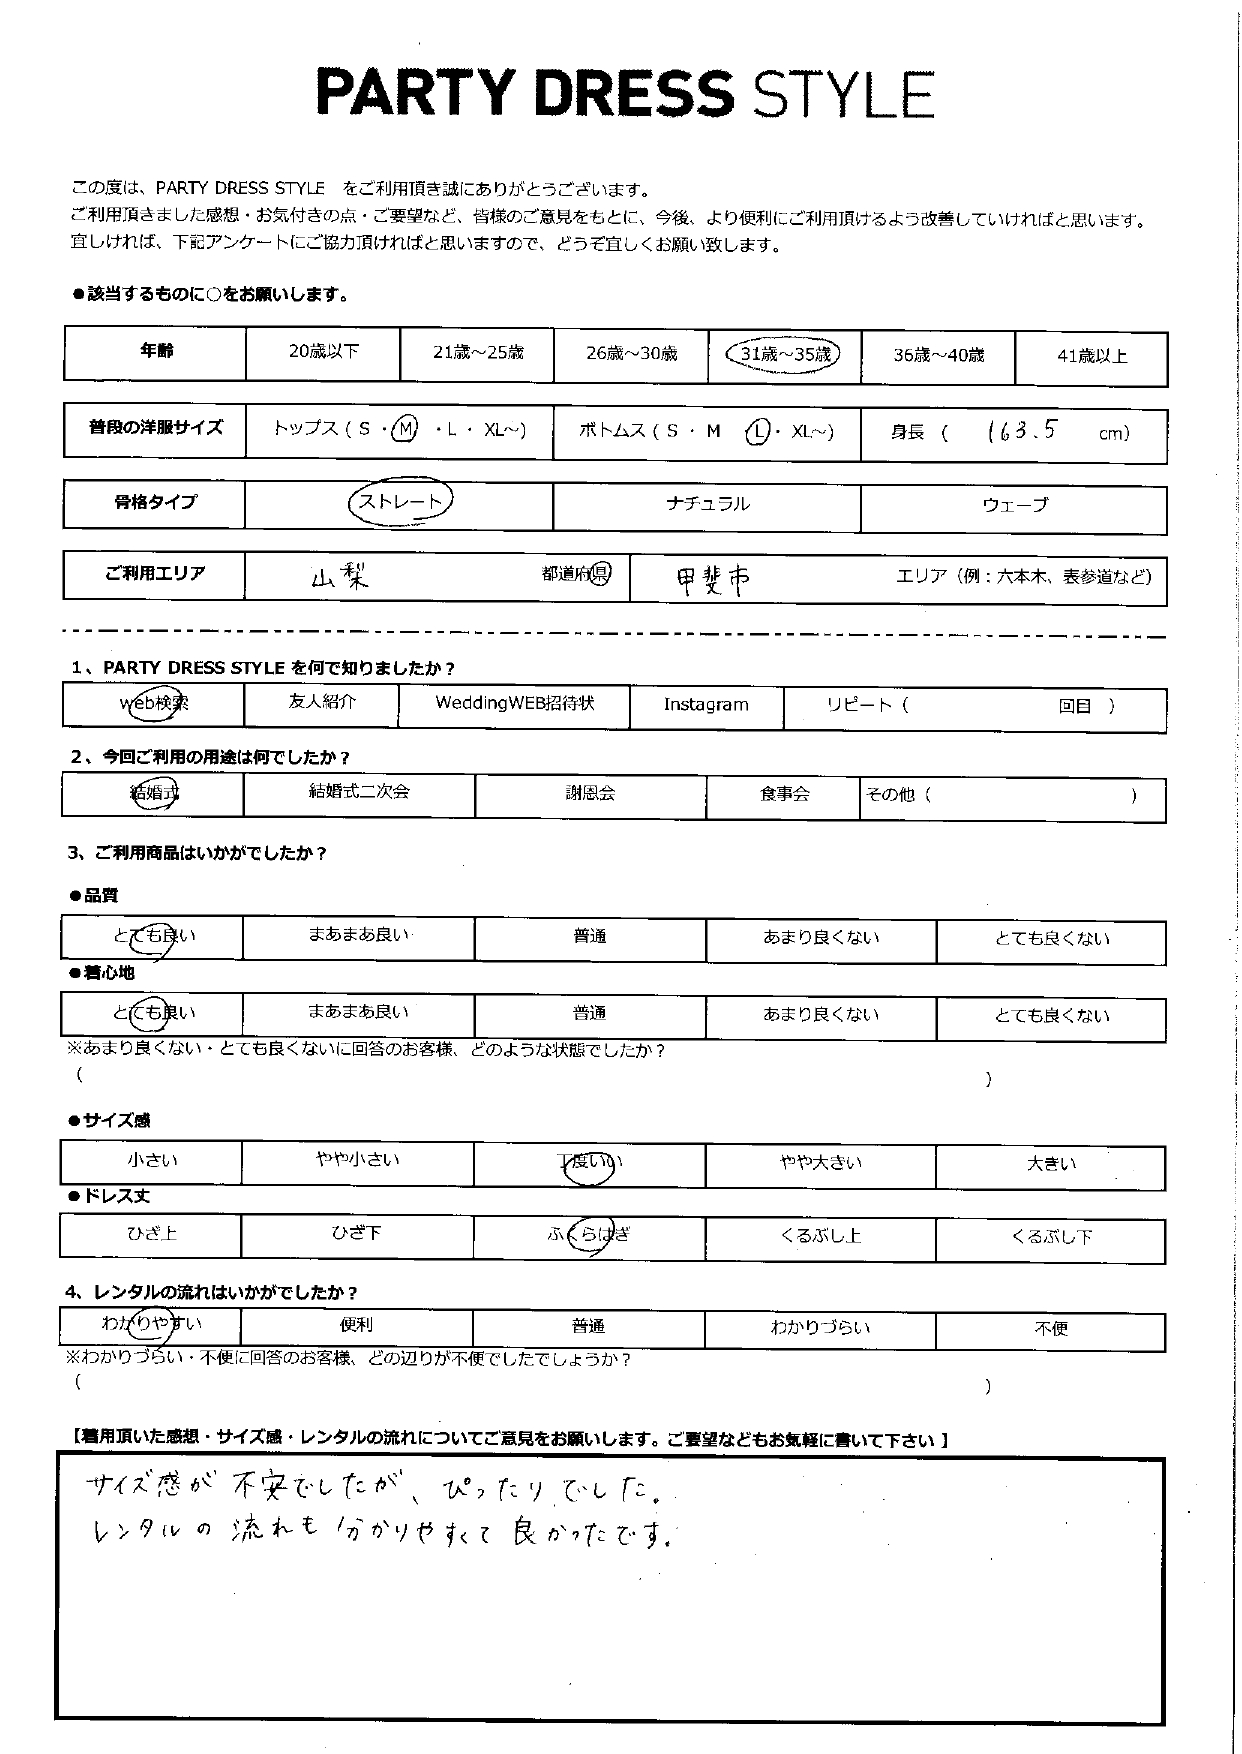 PARTY DRESS STYLE
この度は、PARTY DRESS STYLE　をご利用頂き誠にありがとうございます。
ご利用頂きました感想・お気付きの点・ご要望など、皆様のご意見をもとに、今後、より便利にご利用頂けるよう改善していければと思います。
宜しければ、下記アンケートにご協力頂ければと思いますので、どうぞ宜しくお願い致します。
●該当するものに○をお願いします。
年齢 20歳以下 21歳～25歳 26歳～30歳 31歳～35歳 36歳～40歳 41歳以上
普段の洋服サイズ トップス（ S ・ M ・ L ・ XL～） ボトムス（ S ・ M L ・ XL～） 身長（ 163.5 cm）
骨格タイプ ストレート ナチュラル ウェーブ
ご利用エリア 山梨 都道府県 甲斐市 エリア（例：六本木、表参道など）
1、PARTY DRESS STYLE を何で知りましたか？
web検索 友人紹介 WeddingWEB招待状 Instagram リピート（ 回目 ）
2、今回ご利用の用途は何でしたか？
結婚式 結婚式二次会 謝恩会 食事会 その他（ ）
3、ご利用商品はいかがでしたか？
●品質
とても良い まあまあ良い 普通 あまり良くない とても良くない
●着心地
とても良い まあまあ良い 普通 あまり良くない とても良くない
※あまり良くない・とても良くないに回答のお客様、どのような状態でしたか？
（ ）
●サイズ感
小さい やや小さい 丁度いい やや大きい 大きい
●ドレス丈
ひざ上 ひざ下 ふくらはぎ くるぶし上 くるぶし下
4、レンタルの流れはいかがでしたか？
わかりやすい 便利 普通 わかりづらい 不便
※わかりづらい・不便に回答のお客様、どの辺りが不便でしたでしょうか？
（ ）
【着用頂いた感想・サイズ感・レンタルの流れについてご意見をお願いします。ご要望などもお気軽に書いて下さい 】
サイズ感が不安でしたが、ぴったりでした。
レンタルの流れも分かりやすくて良かったです。